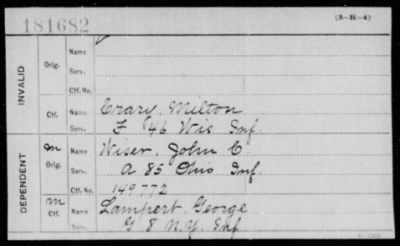 181682
(3-H-4)
INVALID
Orig.
Name
Serv.
Ctf. No.
Ctf.
Name Crary, Milton
Serv. F 46 Wis Inf.
DEPENDENT
m
Orig.
Name Wiser, John C.
Serv. A 85 Ohio Inf.
Ctf. No. 149772
m
Ctf.
Name Lampert, George
Serv. G 8 N.Y. Inf.